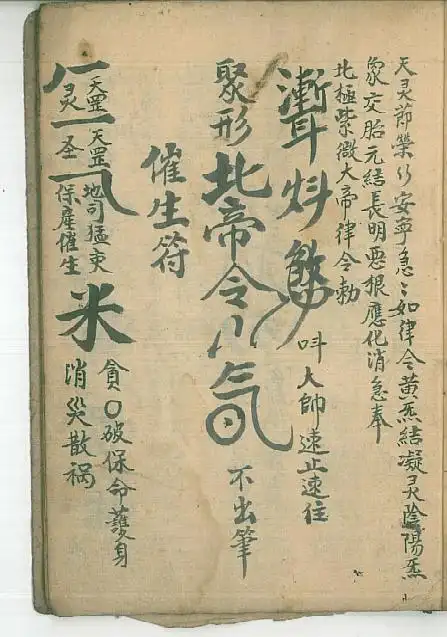 天灵節榮行安寧急〻如律令黄炁結凝灵陰陽炁
象交胎元結長明悪根應化消急奉
北極紫微大帝律令勅
吽大帥速止速住
聚形北帝令
不出筆
催生符
天罡
灵
天罡
圣
地司猛吏
保産催生
米
貪〇破保命護身
消災散禍